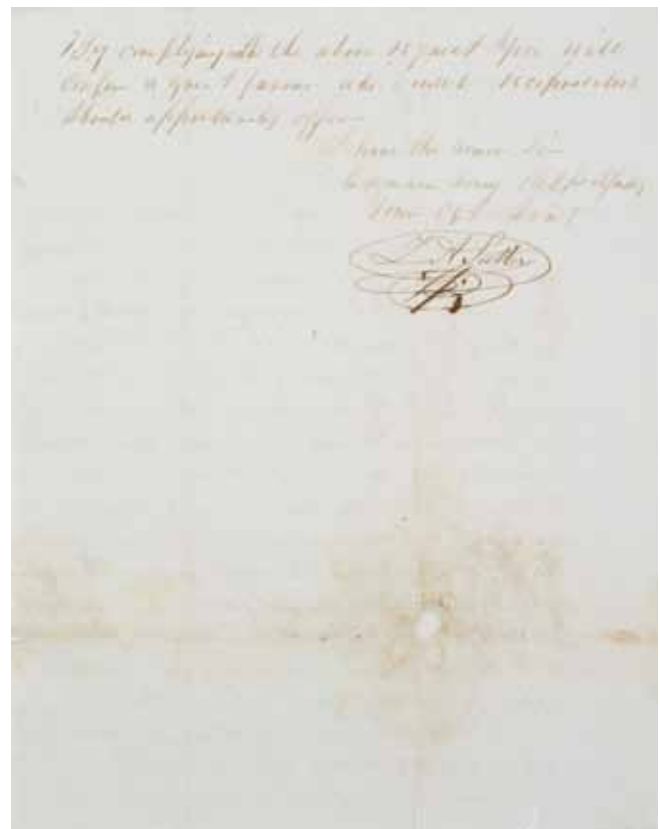 By complying with the above request you will
confer a great favour and I will reciprocate
should opportunity offer
I have the honor Sir
to remain very respectfully
Your Obt
J. A. Sutter